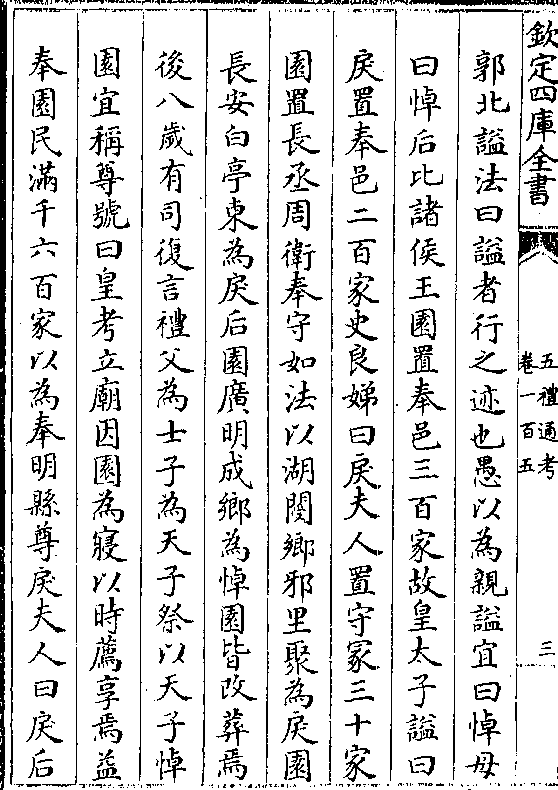 欽定四庫全書
五禮通考
卷一百五
三
郭北諡法曰諡者行之迹也愚以為親諡宜曰悼母
曰悼后比諸侯王園置奉邑三百家故皇太子諡曰
戾置奉邑二百家史良娣曰戾夫人置守冢三十家
園置長丞周衛奉守如法以湖閿鄉邪里聚為戾園
長安白亭東為戾后園廣明成鄉為悼園皆改葬焉
後八歲有司復言禮父為士子為天子祭以天子悼
園宜稱尊號曰皇考立廟因園為寢以時薦享焉益
奉園民滿千六百家以為奉明縣尊戾夫人曰戾后